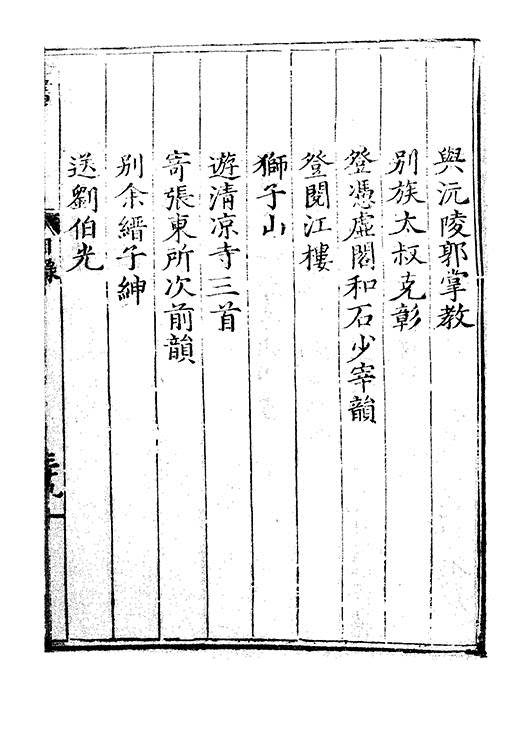 與沅陵郭掌教
别族太叔克彰
登憑虛閣和石少宰韻
登閱江樓
獅子山
遊清凉寺三首
寄張東所次前韻
别余縉子紳
送劉伯光
目錄
三十九